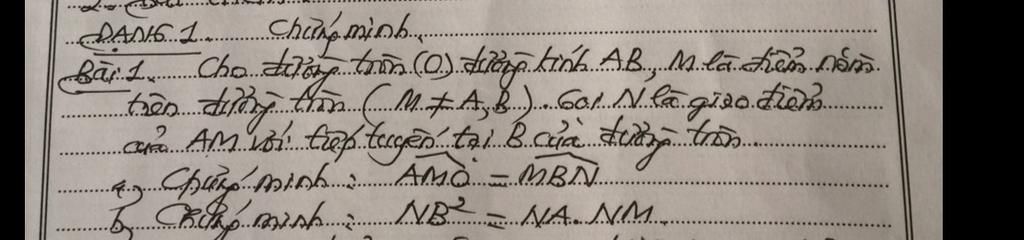 DẠNG 1. Chứng minh.
Bài 1. Cho đường tròn (O) đường kính AB, M là điểm nằm
trên đường tròn (M ≠ A, B). Gọi N là giao điểm
của AM với tiếp tuyến tại B của đường tròn.
a, Chứng minh: \widehat{AMO} = \widehat{MBN}
b, Chứng minh: NB² = NA. NM.